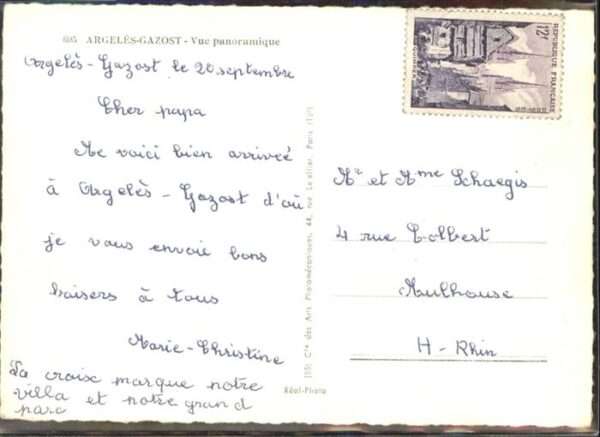 ARGELÈS-GAZOST - Vue panoramique
Argelès-Gazost le 20 septembre
Cher papa
Me voici bien arriveé
à Argelès-Gazost d'où
je vous envoie bons
baisers à tous
Marie-Christine
La croix marque notre
villa et notre grand
parc
Mr et Mme Schaegis
4 rue Colbert
Mulhouse
H-Rhin
Cie des Arts Photomécaniques, 44, rue Letellier, Paris
Réal-Photo
12F
REPUBLIQUE FRANÇAISE
QUIMPER
POSTES